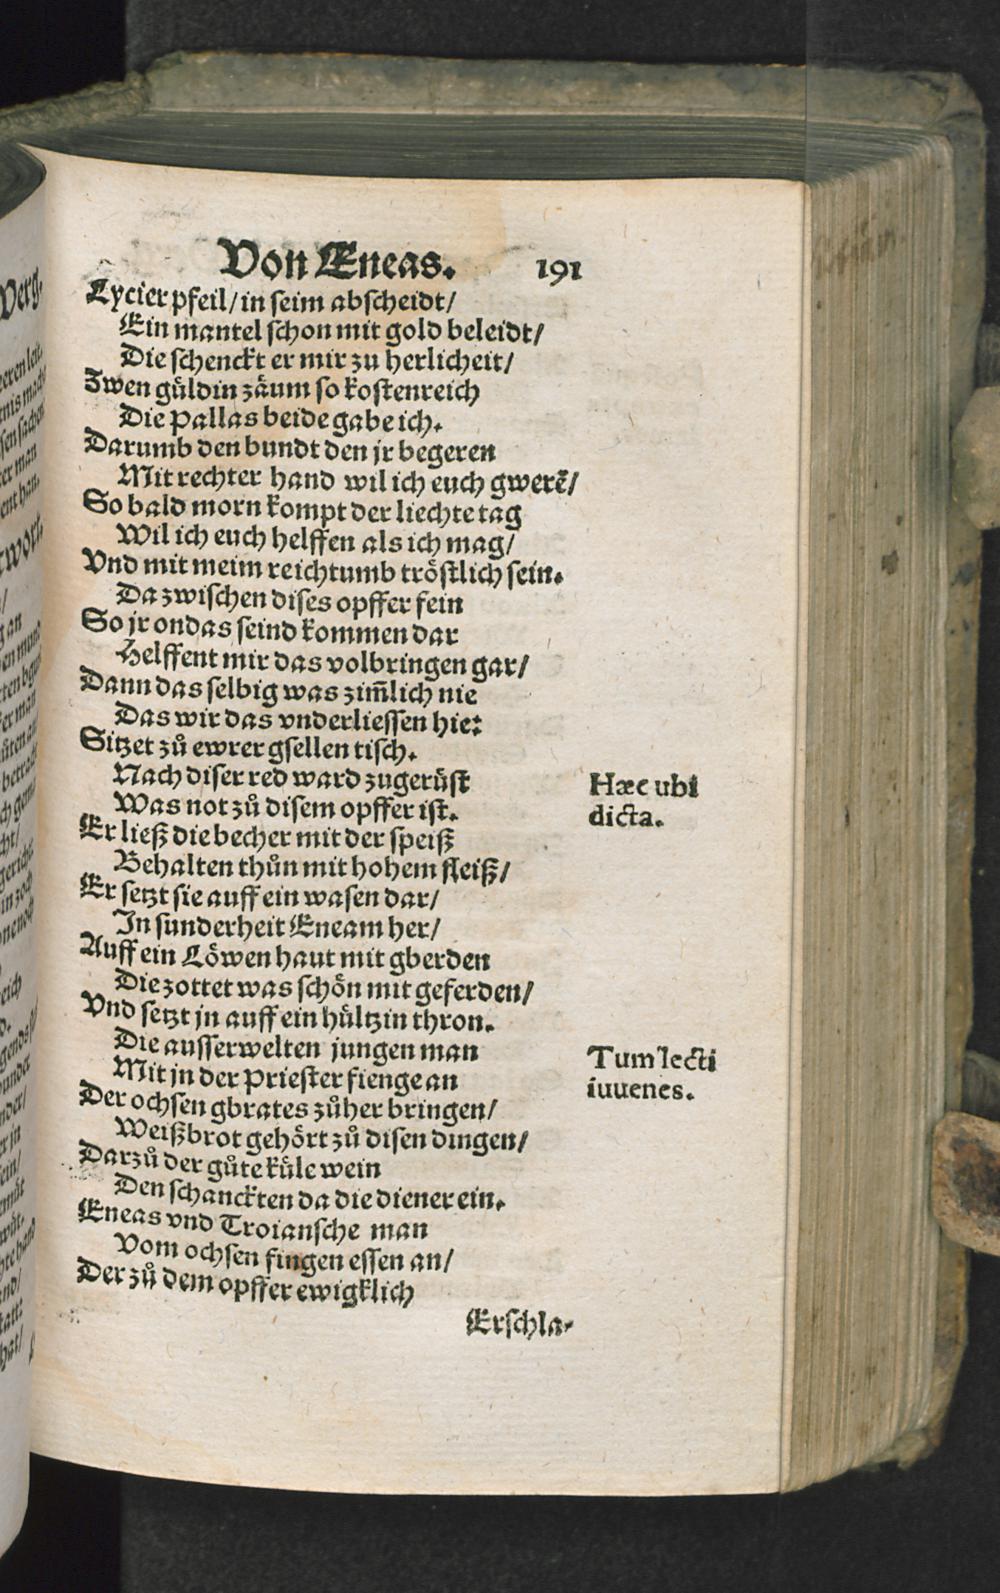 Von Eneas. 191
Lycier pfeil/ in seim abscheidt/
Ein mantel schon mit gold beleidt/
Die schenckt er mir zu herlicheit/
Zwen güldin zäum so kostenreich
Die Pallas beide gabe ich.
Darumb den bundt den jr begeren
Mit rechter hand wil ich euch gwerē/
So bald morn kompt der liechte tag
Wil ich euch helffen als ich mag/
Vnd mit meim reichtumb tröstlich sein.
Da zwischen dises opffer fein
So jr ondas seind kommen dar
Helffent mir das volbringen gar/
Dann das selbig was zim̃lich nie
Das wir das vnderliessen hie:
Sitzet zů ewrer gsellen tisch.
Nach diser red ward zugerüst
Hæc ubi
Was not zů disem opffer ist.
dicta.
Er ließ die becher mit der speiß
Behalten thůn mit hohem fleiß/
Er setzt sie auff ein wasen dar/
In sunderheit Eneam her/
Auff ein Löwen haut mit gberden
Die zottet was schön mit geferden/
Vnd setzt jn auff ein hültzin thron.
Die ausserwelten jungen man
Tum lecti
Mit jn der Priester fienge an
iuuenes.
Der ochsen gbrates zůher bringen/
Weißbrot gehört zů disen dingen/
Darzů der gůte küle wein
Den schanckten da die diener ein.
Eneas vnd Troiansche man
Vom ochsen fingen essen an/
Der zů dem opffer ewigklich
Erschla-